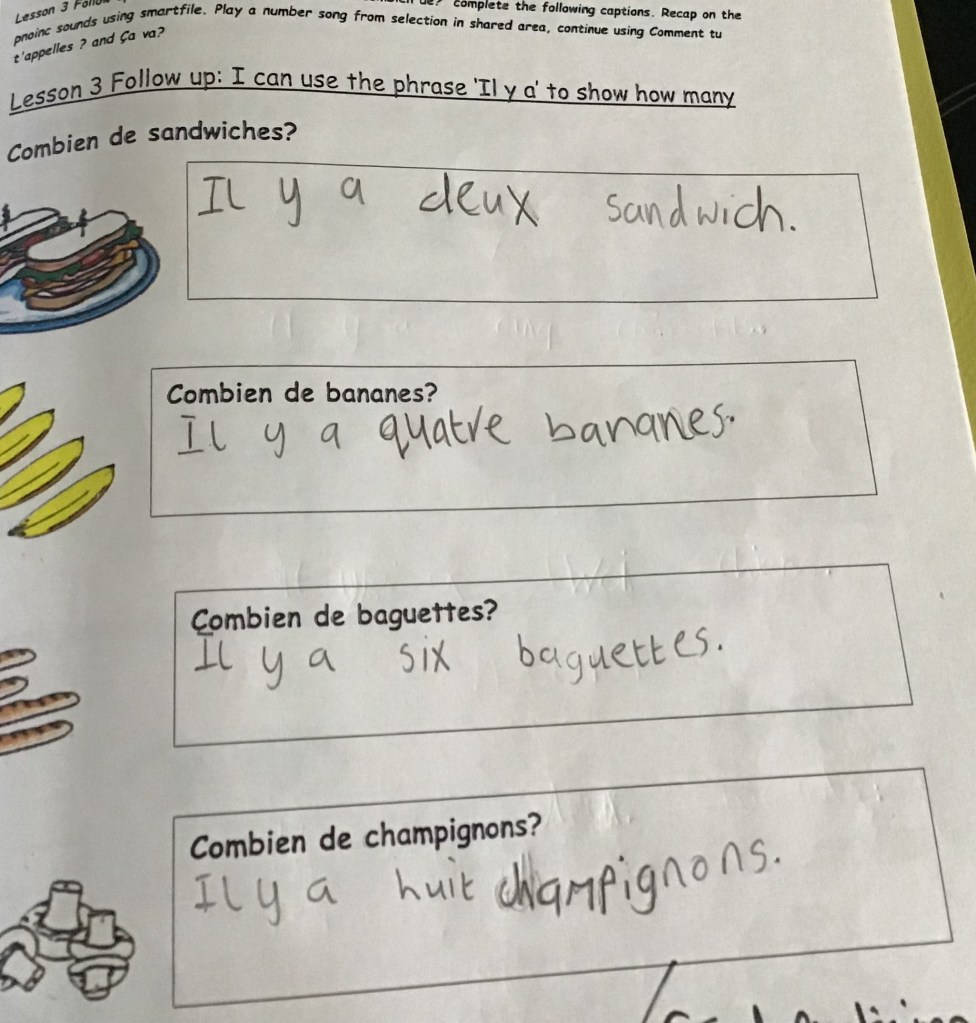 Lesson 3 Follow
complete the following captions. Recap on the
phoinc sounds using smartfile. Play a number song from selection in shared area, continue using Comment tu
t'appelles ? and Ça va?
Lesson 3 Follow up: I can use the phrase 'Il y a' to show how many
Combien de sandwiches?
Il y a deux sandwich.
Combien de bananes?
Il y a quatre bananes.
Combien de baguettes?
Il y a six baguettes.
Combien de champignons?
Il y a huit champignons.